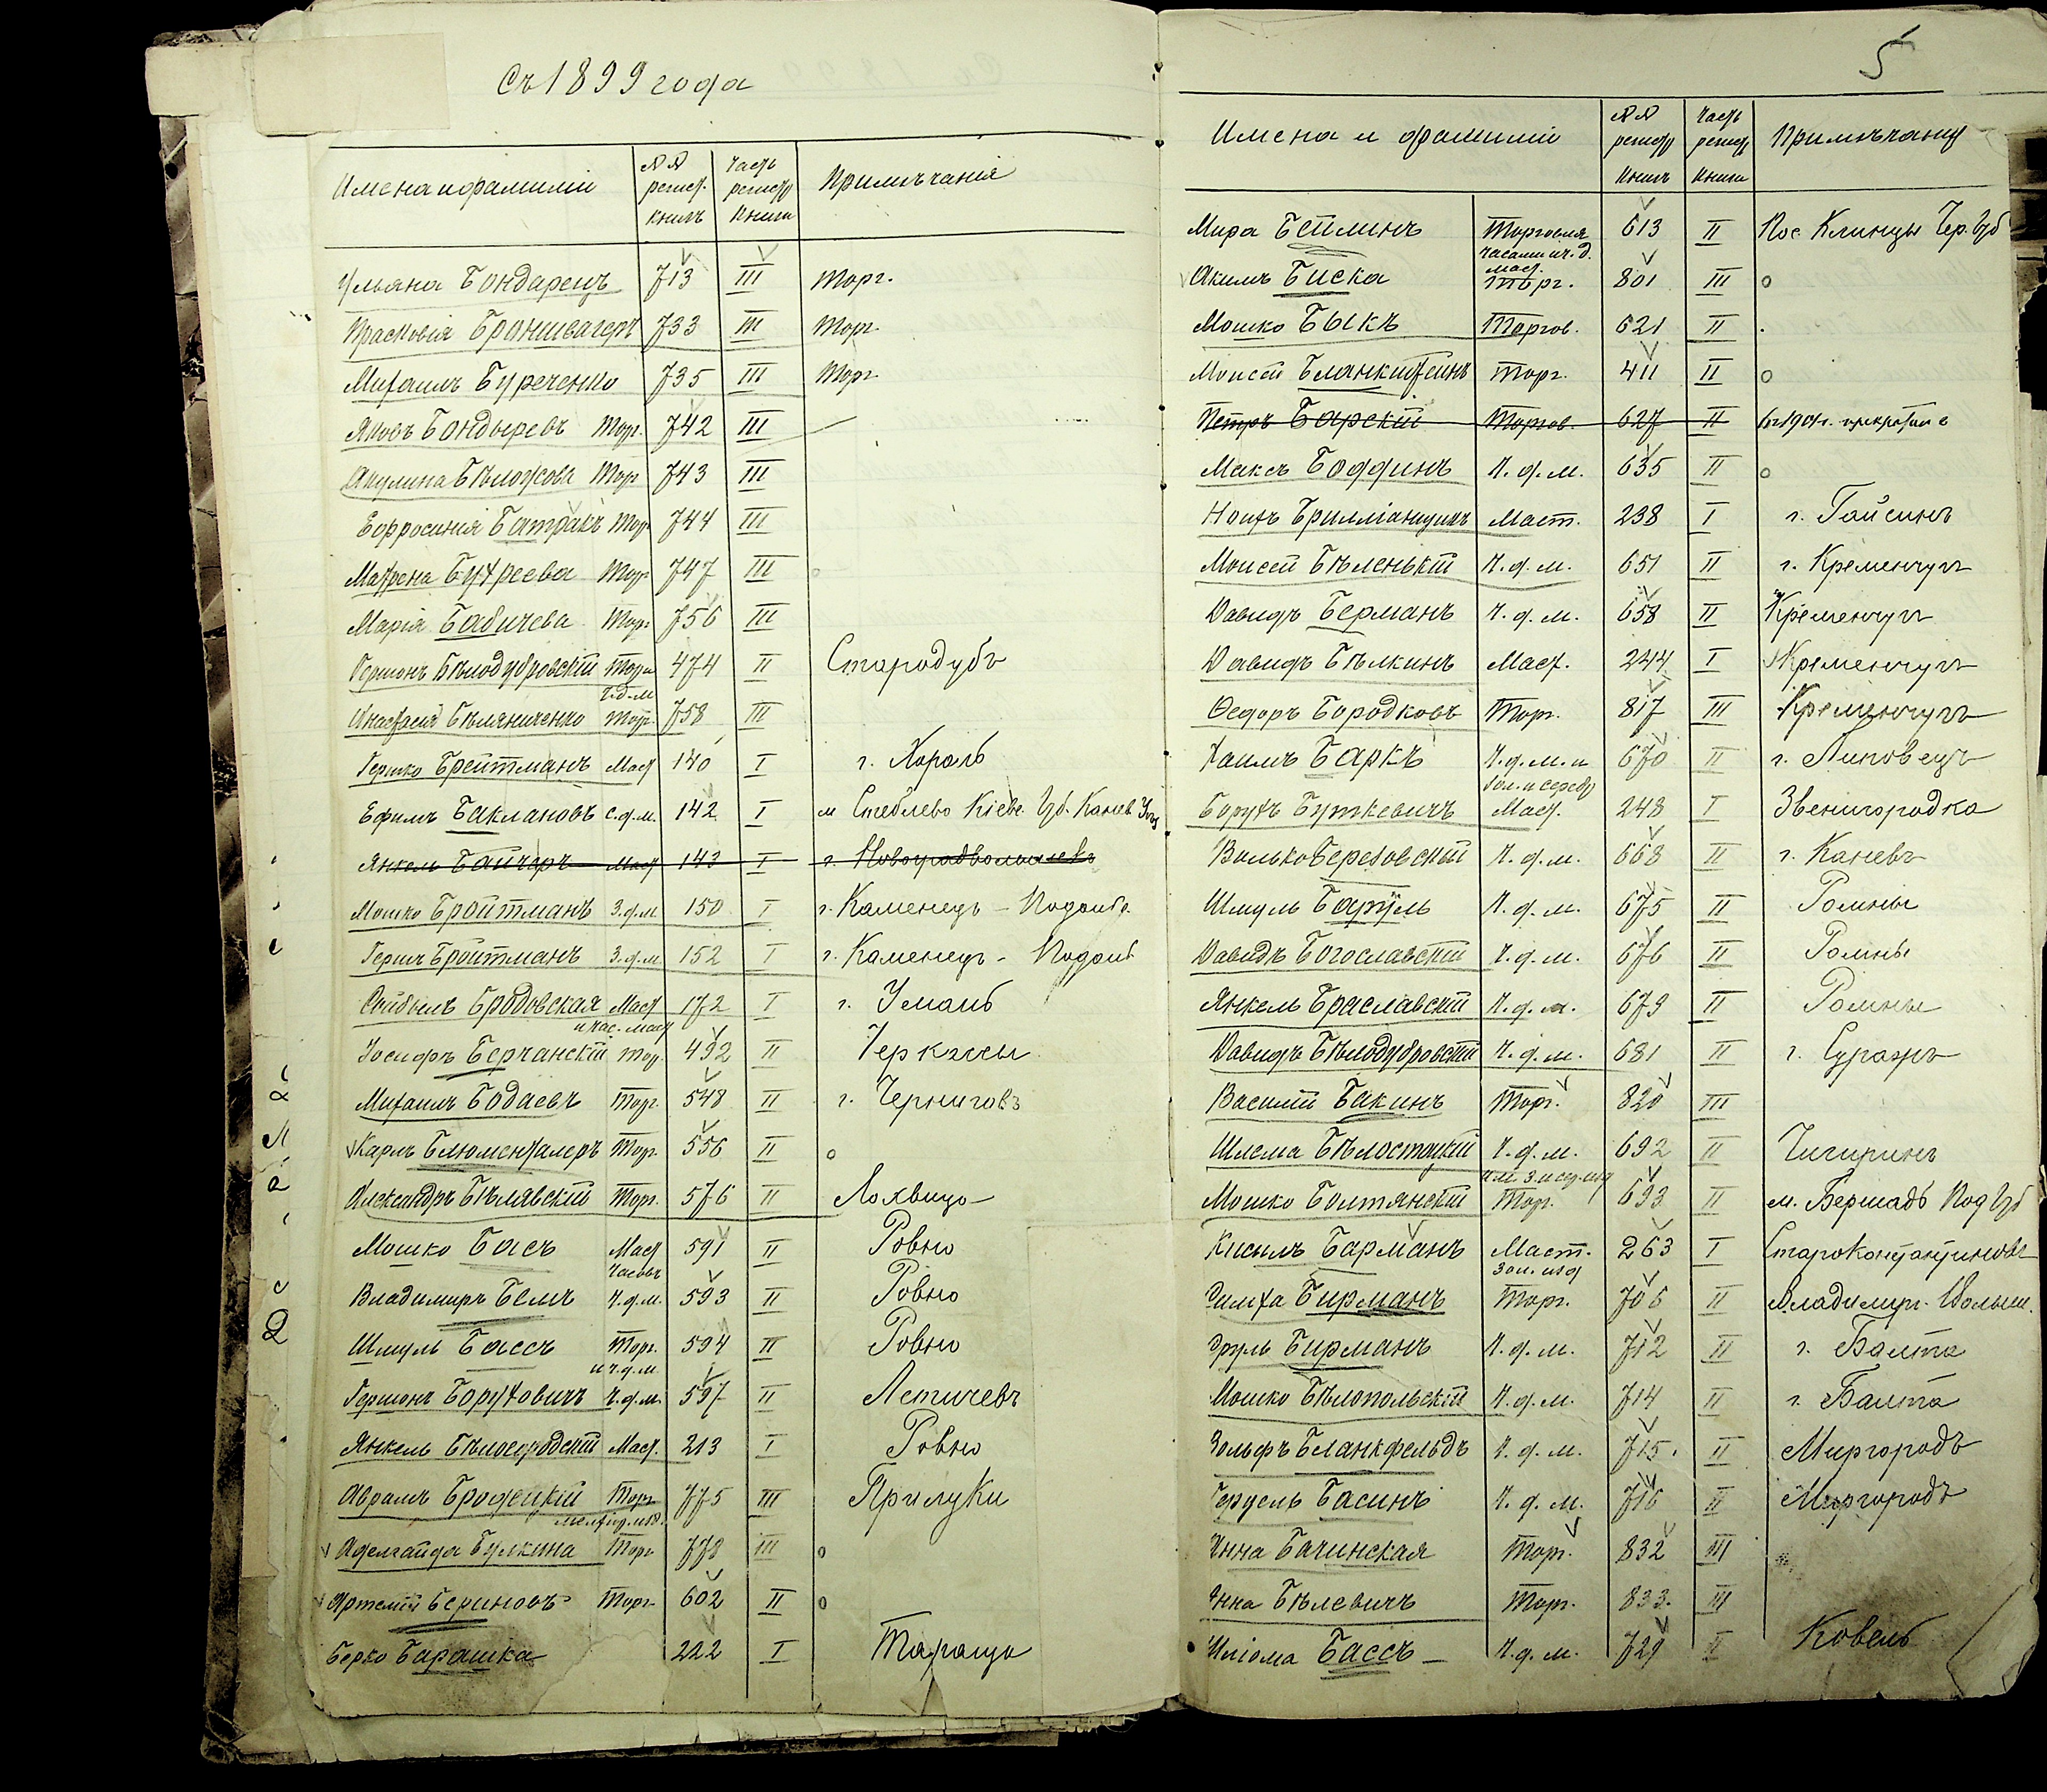 Съ 1899 года
Имена и фамиліи №№ регист. книгъ Часть регистр книги Примѣчанія
Ульяна Бондарецъ 713 III Торг.
Прасковія Бронивагеръ 733 III Торг.
Михаилъ Буреченко 735 III Торг
Яковъ Бондыревъ Тор. 742 III
Акулина Тор 743 III
Евфросинія Батракъ Тор 744 III
Матрена Бухреева Тор 747 III
Марія Бабичева Тор. 756 III
Гершонъ Бѣлодубровскій Торг 474 II Стародубъ
ч.д.м
Анастасія Бѣляниченко Торг. 758 III
Гершко Брейтманъ Маст 140 I г. Хороль
Ефимъ Баклановъ с.д.м. 142 I м Стеблево Кіевс. Губ. Канев. У
Янкель Байчеръ Маст 143 I г. Новоградволынскъ
Мошко Бройтманъ З.д.м. 150 I г. Каменецъ - Подольс.
Гершъ Бройтманъ З.д.м. 152 I г. Каменецъ - Подольс
Бродовская Маст 172 I г. Умань
и час. маст
Іосифъ Берчанскій тор. 492 II Черкассы
Михаилъ Бодаевъ Торг. 548 II г. Черниговъ
Карлъ Блюменталеръ Торг. 556 II о
Александръ Бѣлявскій Торг. 576 II Лохвица
Мошко Басъ Маст 591 II Ровно
часовъ
Владимиръ Бемъ ч.д.м. 593 II Ровно
Шмуль Бассъ Торг. 594 II Ровно
и ч.д.м.
Гершонъ Боруховичъ ч.д.м. 597 II Летичевъ
Янкель Бѣлогородскій Маст. 213 I Ровно
Абрамъ Бродецкій Торг 775 III Прилуки
Аделгайда Булкина Торг 778 III о
Артемій Бериновъ Торг. 602 II о
Берко Барашка 222 I Тараща
5
Имена и фамиліи №№ регистр книгъ Часть регист книги Примѣчанія
Мира Бейлинъ Торговля 613 II Пос Клинцы Чер. Губ
часами и ч.д.
маст.
Акимъ Биска Торг. 801 III о
Мошко Быкъ Торгов. 621 II
Моисей Бланкштейнъ Торг. 411 II о
Петръ Барскій Торгов. 627 II въ 1901 г. прекратилъ
Максъ Боффинъ ч.д.м. 635 II о
Нохъ Брилліанщикъ Маст. 238 I г. Гайсинъ
Моисей Бѣленькій ч.д.м. 651 II г. Кременчугъ
Давидъ Берманъ ч.д.м. 658 II Кременчугъ
Давидъ Бѣлкинъ Маст. 244 I Кременчугъ
Ѳедоръ Бородковъ Торг. 817 III Кременчугъ
Хаимъ Баркъ ч.д.м. и 670 II г. Липовецъ
зол. и серебр
Борухъ Буткевичъ Маст. 248 I Звенигородка
Волько Березовскій ч.д.м. 668 II г. Каневъ
Шмуль Баруль ч.д.м. 675 II Ромны
Давидъ Богославскій ч.д.м. 676 II Ромны
Янкель Браславскій ч.д.м. 679 II Ромны
Давидъ Бѣлодубровскій ч.д.м. 681 II г. Суражъ
Василій Бакинъ Торг. 820 III
Шлема Бѣлостоцкій ч.д.м. 692 II Чигиринъ
Мошко Болтянскій Торг. 693 II м. Бершадь Под Губ
Кисыль Барманъ Маст. 263 I Староконстантиновъ
зол. изд
Симха Бирманъ Торг. 706 II Владимир. Волын.
Сруль Бирманъ ч.д.м. 712 II г. Балта
Мошко Бѣлопольскій ч.д.м. 714 II г. Балта
Вольфъ Бланкфельдъ ч.д.м. 715. II Миргородъ
Герцель Басинъ ч.д.м. 716 II Миргородъ
Анна Бачинская Торг. 832 III
Анна Бѣлевичъ Торг. 833. III
Шліома Бассъ ч.д.м. 729 II Ковель